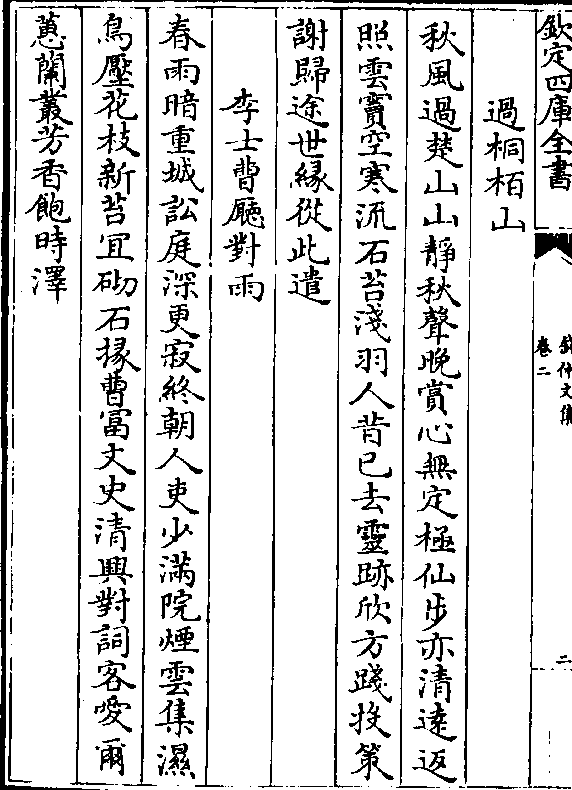 欽定四庫全書
錢仲文集
卷二
二
過桐栢山
秋風過楚山山靜秋聲晚賞心無定極仙步亦清逺返
照雲竇空寒流石苔淺羽人昔已去靈跡欣方踐投策
謝歸途世緣從此遣
李士曹廳對雨
春雨暗重城訟庭深更寂終朝人吏少滿院煙雲集濕
鳥壓花枝新苔宜砌石掾曹富文史清興對詞客愛爾
蕙蘭叢芳香飽時澤